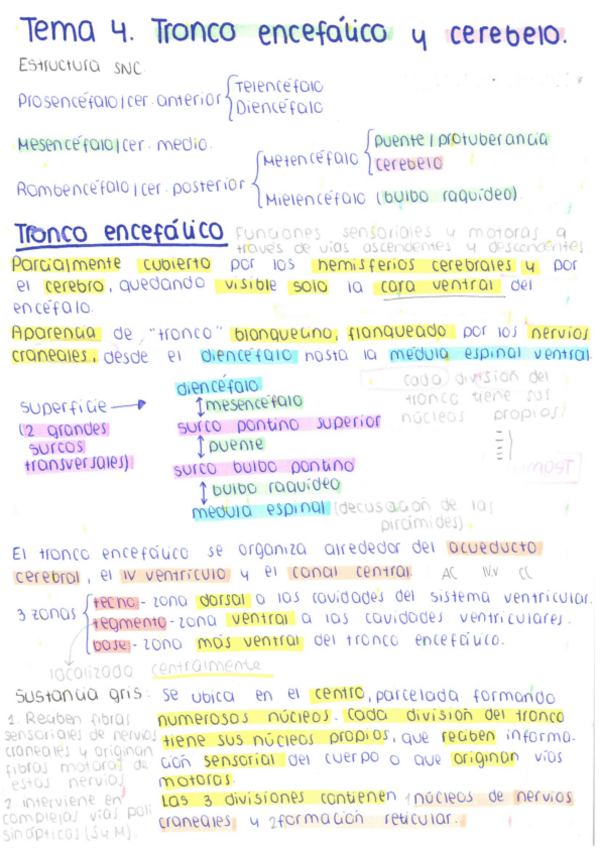 Tema 4. Tronco encefálico y cerebelo.
Estructura SNC.
Prosencéfalo/cer. anterior { Telencéfalo
Diencéfalo
Mesencéfalo/cer. medio.
Rombencéfalo/cer. posterior { Metencéfalo { puente/protuberancia
cerebelo
Mielencéfalo (bulbo raquídeo)
Tronco encefálico funciones sensoriales y motoras a
través de vías ascendentes y descendentes
Parcialmente cubierto por los hemisferios cerebrales y por
el cerebro, quedando visible solo la cara ventral del
encéfalo.
Aparencia de "tronco" blanquecino, flanqueado por los nervios
craneales, desde el diencéfalo hasta la médula espinal ventral.
superficie →
(2 grandes
surcos
transversales)
diencéfalo
↕ mesencéfalo
surco pontino superior
↕ puente
surco bulbo pontino
↕ bulbo raquídeo
médula espinal (decusación de las
pirámides)
cada división del
tronco tiene sus
núcleos propios!
El tronco encefálico se organiza alrededor del acueducto
cerebral, el IV ventrículo y el canal central. AC IVv CC
3 zonas { tecno - zona dorsal a las cavidades del sistema ventricular.
tegmento - zona ventral a las cavidades ventriculares.
base - zona más ventral del tronco encefálico.
localizado centralmente
Sustancia gris: se ubica en el centro, parcelada formando
numerosos núcleos. Cada división del tronco
tiene sus núcleos propios, que reciben informa-
ción sensorial del cuerpo o que originan vías
motoras.
Las 3 divisiones contienen 1 núcleos de nervios
craneales y 2 formación reticular.
1. Reciben fibras
sensoriales de nervios
craneales y originan
fibras motoras de
estos nervios
2. interviene en
complejas vías poli
sinápticas (S y M).